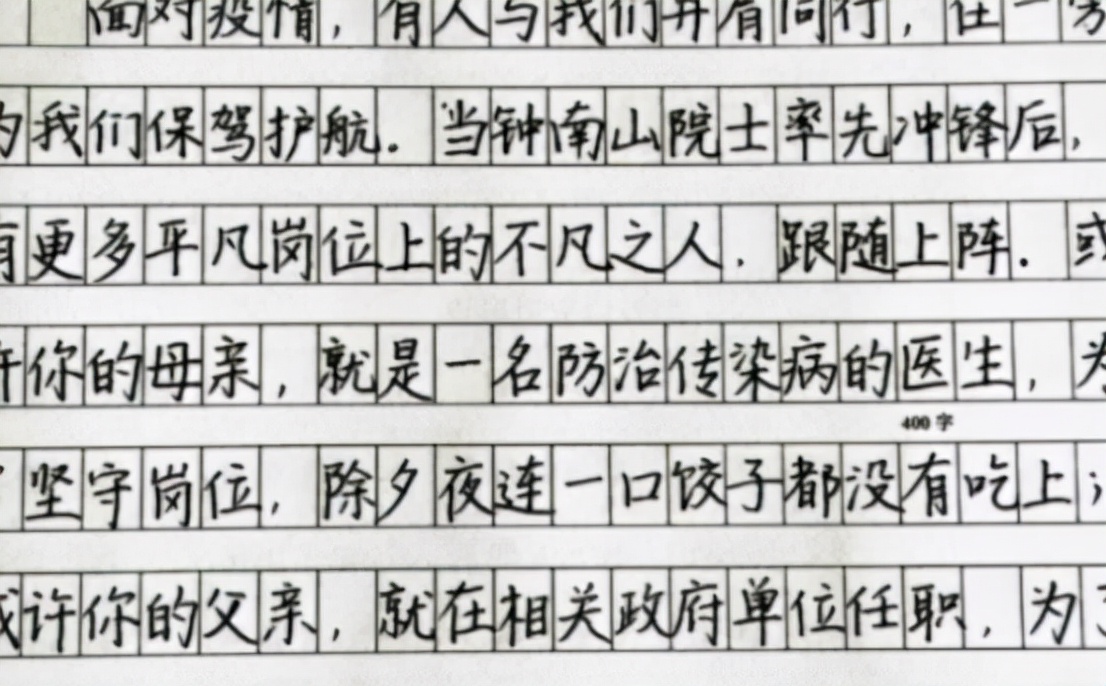 面对疫情，有人与我们并肩同行，在一旁
为我们保驾护航。当钟南山院士率先冲锋后，
有更多平凡岗位上的不凡之人，跟随上阵。或
许你的母亲，就是一名防治传染病的医生，为
400字
了坚守岗位，除夕夜连一口饺子都没有吃上；
或许你的父亲，就在相关政府单位任职，为了